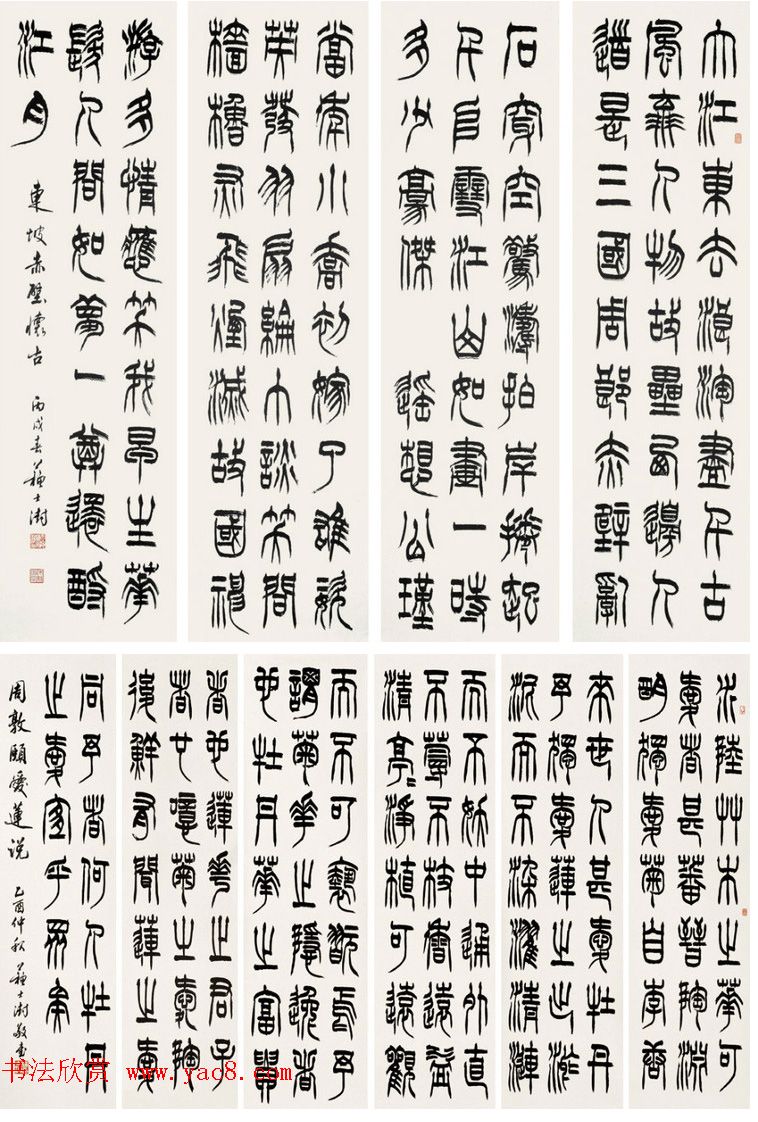 大江東去浪淘盡千古
風流人物故壘西邊人
道是三國周郎赤壁亂
石穿空驚濤拍岸捲起
千堆雪江山如畫一時
多少豪傑 遙想公瑾
當年小喬初嫁了雄姿
英發羽扇綸巾談笑間
檣櫓灰飛煙滅故國神
游多情應笑我早生華
髮人間如夢一尊還酹
江月
東坡赤壁懷古 丙戌春 蘇士澍
水陸艸木之華可
愛者甚蕃晉陶淵
明獨愛菊自李唐
來世人甚愛牡丹
予獨愛蓮之出淤
泥而不染濯清漣
而不妖中通外直
不蔓不枝香遠益
清亭〻淨植可遠觀
而不可褻翫焉予
謂菊華之隱逸者
也牡丹華之富貴
者也蓮花之君子
者也噫菊之愛陶
後鮮有聞蓮之愛
同予者何人牡丹
之愛宜乎眾矣
周敦頤愛蓮說 乙酉仲秋 蘇士澍敬書
书法欣赏 www.yac8.com